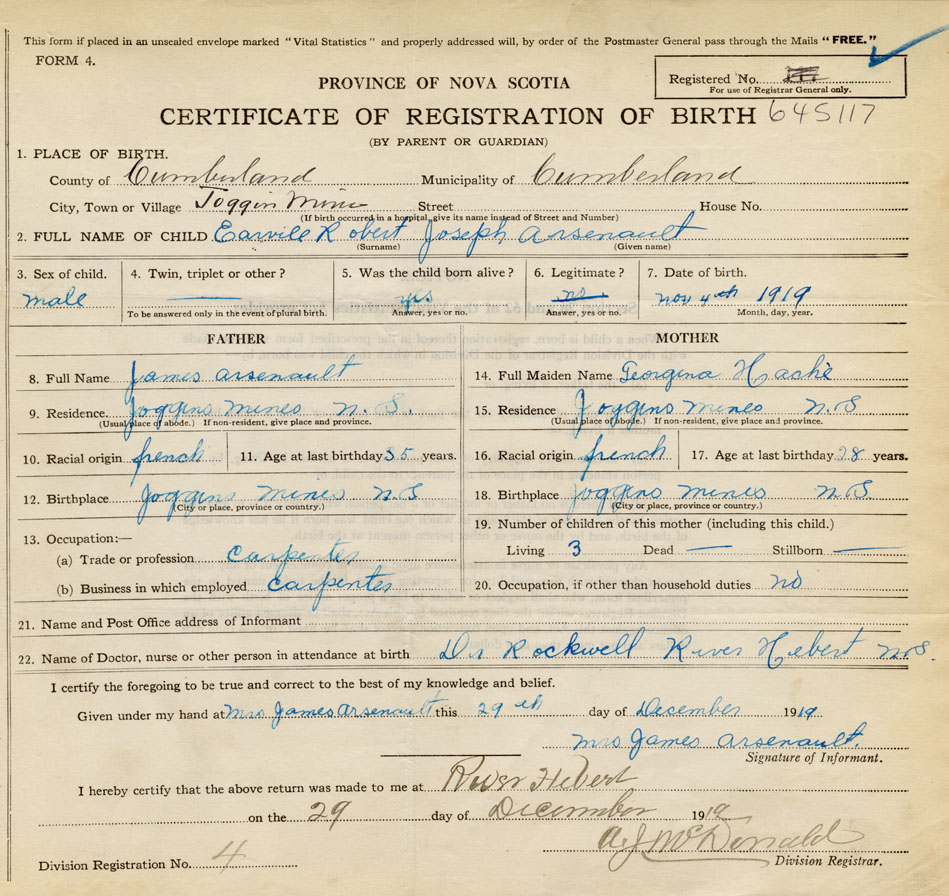 This form if placed in an unsealed envelope marked "Vital Statistics" and properly addressed will, by order of the Postmaster General pass through the Mails "FREE."
FORM 4.
Registered No.
For use of Registrar General only.
PROVINCE OF NOVA SCOTIA
CERTIFICATE OF REGISTRATION OF BIRTH 645117
(BY PARENT OR GUARDIAN)
1. PLACE OF BIRTH.
County of Cumberland Municipality of Cumberland
City, Town or Village Joggin Mines Street House No.
(If birth occurred in a hospital, give its name instead of Street and Number)
2. FULL NAME OF CHILD Earville Robert Joseph Arsenault
(Surname) (Given name)
3. Sex of child. 4. Twin, triplet or other? 5. Was the child born alive? 6. Legitimate? 7. Date of birth.
male yes no nov 4th 1919
To be answered only in the event of plural birth. Answer, yes or no. Answer, yes or no. Month, day, year.
FATHER MOTHER
8. Full Name James Arsenault 14. Full Maiden Name Georgina Hachè
9. Residence Joggins Mines N.S. 15. Residence Joggins Mines N.S
(Usual place of abode.) If non-resident, give place and province. (Usual place of abode.) If non-resident, give place and province.
10. Racial origin french 11. Age at last birthday 35 years. 16. Racial origin french 17. Age at last birthday 28 years.
12. Birthplace Joggins Mines N.S 18. Birthplace Joggins Mines N.S
(City or place, province or country.) (City or place, province or country.)
19. Number of children of this mother (including this child.)
13. Occupation:—
(a) Trade or profession carpenter Living 3 Dead — Stillborn —
(b) Business in which employed carpenter 20. Occupation, if other than household duties no
21. Name and Post Office address of Informant
22. Name of Doctor, nurse or other person in attendance at birth Dr Rockwell River Hebert N.S.
I certify the foregoing to be true and correct to the best of my knowledge and belief.
Given under my hand at Mrs James Arsenault this 29th day of December 1919
Mrs James Arsenault.
Signature of Informant.
I hereby certify that the above return was made to me at River Hebert
on the 29 day of December 1919
A J McDonald
Division Registration No. 4 Division Registrar.